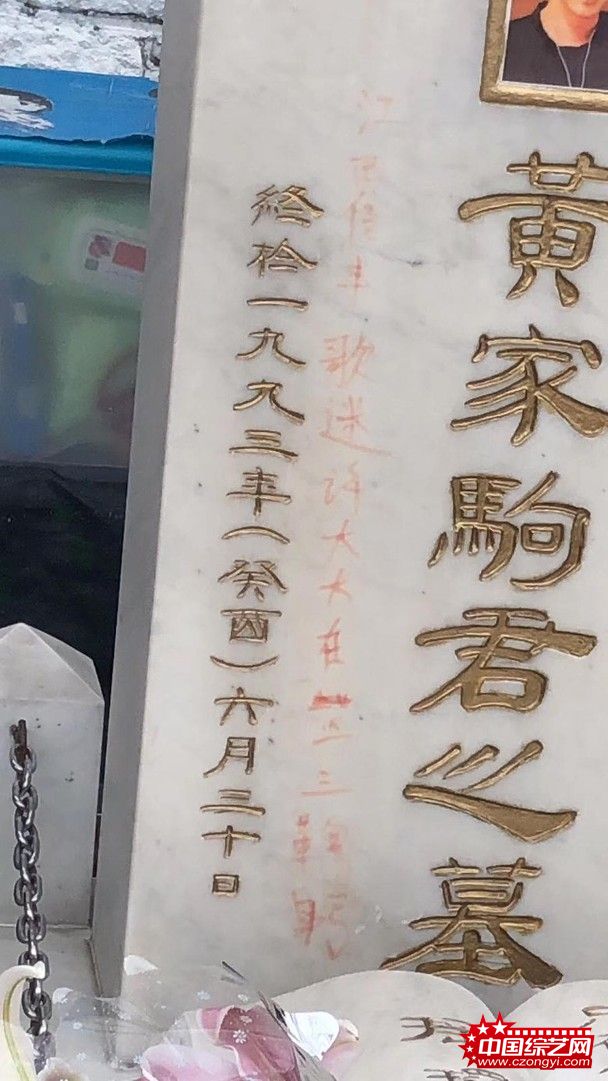 黃家駒君之墓
江西信丰歌迷许大大在三三鞠躬
終於一九九三年(癸酉)六月三十日
中国综艺网
www.czongyi.com